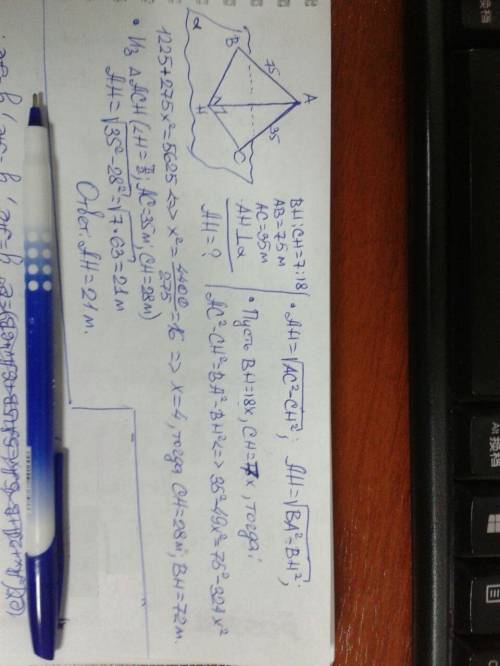 α
B
75
A
H
C
35
BH:CH=7:18
AB=75м
AC=35м
AH⊥α
AH=?
• AH=√AC²-CH²; AH=√BA²-BH²;
• Пусть BH=18x, CH=7x, тогда:
AC²-CH²=BA²-BH² <=> 35²-49x²=75²-324x²
1225+275x²=5625 <=> x²=4400/275=16 => x=4, тогда CH=28м; BH=72м.
• Из △ACH (∠H=
; AC=35м; CH=28м)
AH=√35²-28²=√7·63=21м
Ответ: AH=21м.